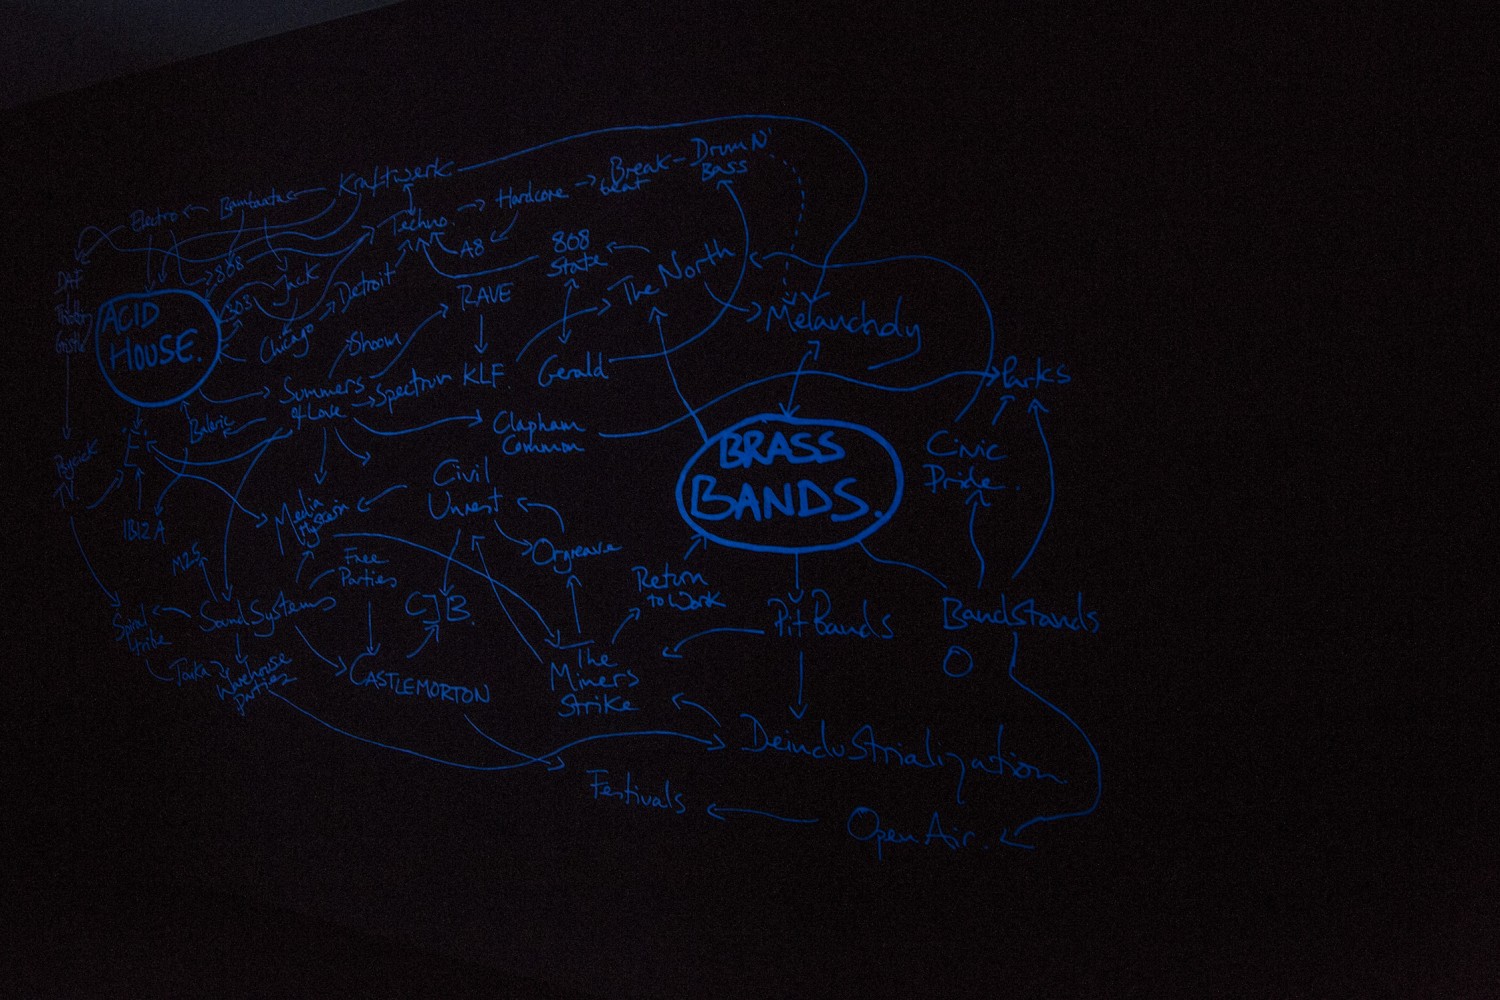 Kraftwerk
Break-
beat
Drum N'
Bass
Hardcore
Bambaataa
Electro
Techno.
A8
808
State
The North
808
Jack
DAF
303
Detroit
RAVE
ACID
HOUSE.
Chicago
Shoom
Melancholy
Gerald
KLF.
Parks
Summers
of Love
Spectrum
Balearic
Clapham
Common
BRASS
BANDS.
Civic
Pride.
'E'
Psychick
TV
Civil
Unrest
IBIZA
Media
Hysteria
Orgreave
M25
Free
Parties
Return
to Work
CJB.
Sound Systems
Spiral
tribe
Pit Bands
Bandstands
O
Tonka
Warehouse
parties
CASTLEMORTON
The
Miners
Strike
Deindustrialization
Festivals
Open Air.